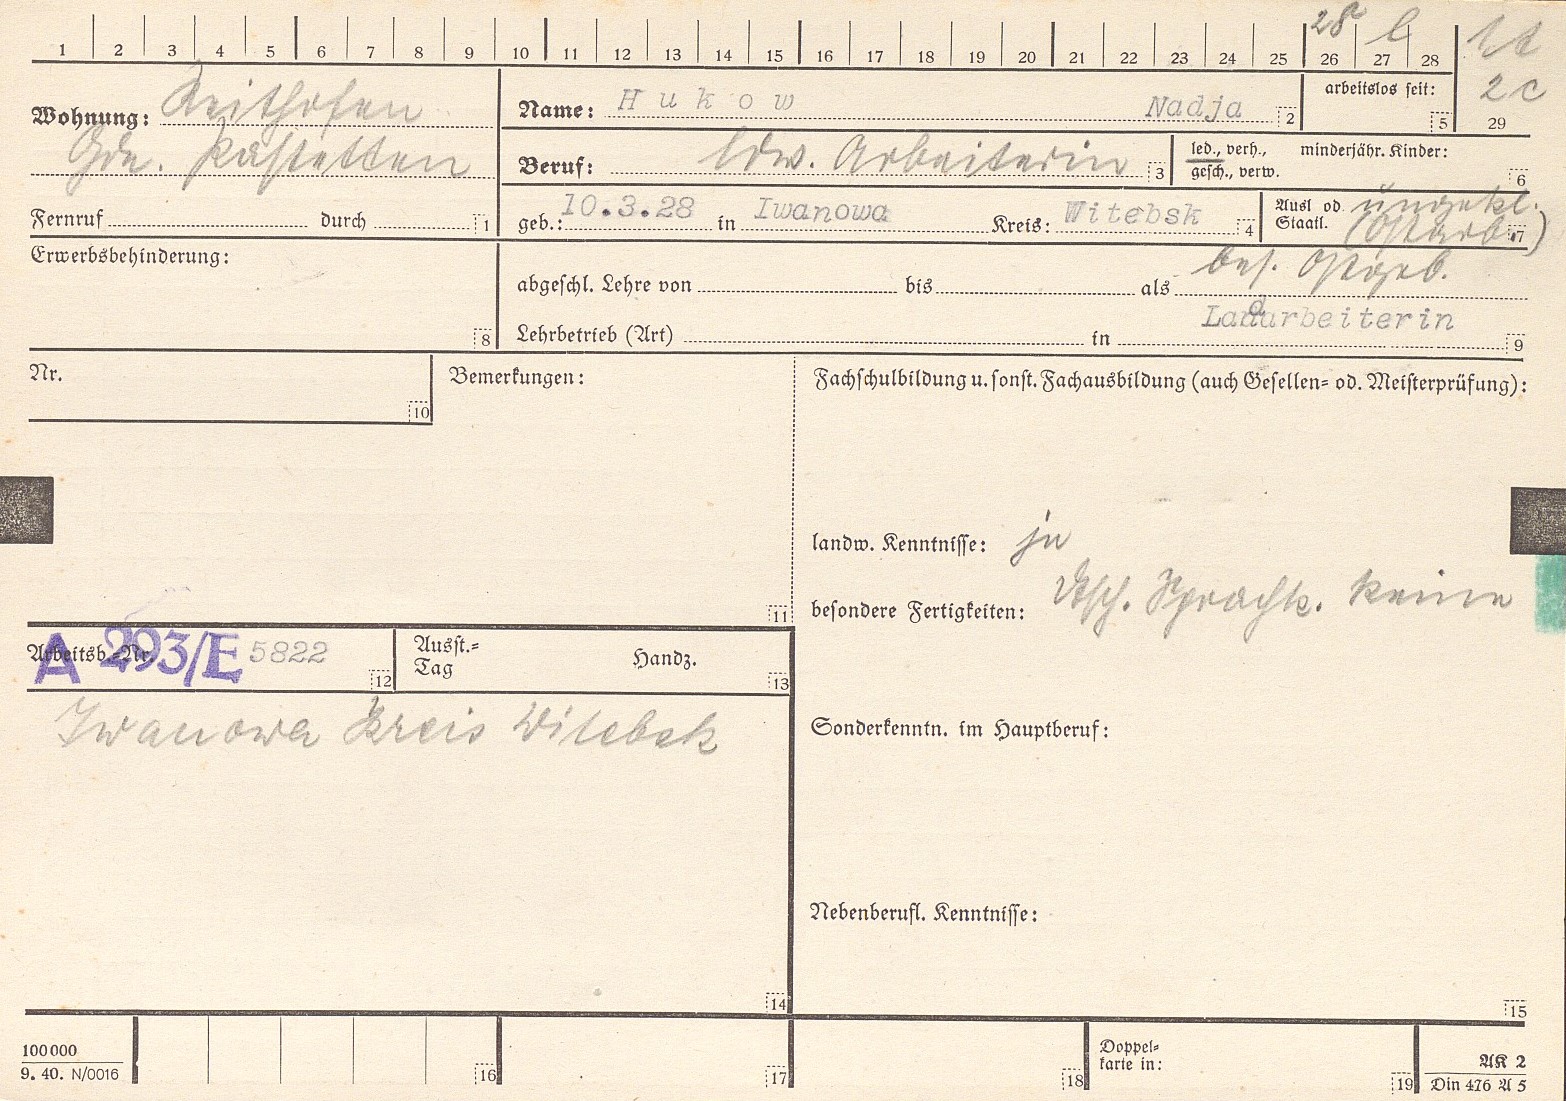 1 2 3 4 5 6 7 8 9 10 11 12 13 14 15 16 17 18 19 20 21 22 23 24 25 26 27 28
28 l
2c
29
Wohnung: Reithofen
Gde. Pastetten
Fernruf durch 1
Name: Hukow Nadja 2
arbeitslos seit: 5
Beruf: ldw. Arbeiterin 3
led., verh., minderjähr. Kinder:
gesch., verw. 6
geb.: 10.3.28 in Iwanowa Kreis: Witebsk 4
Ausl od. ungekl.
Staatl. (Ostarb.) 7
bes. Ostgeb.
Erwerbsbehinderung:
8
abgeschl. Lehre von bis als
Landarbeiterin
Lehrbetrieb (Art) in 9
Nr.
10
Bemerkungen:
11
Fachschulbildung u. sonst. Fachausbildung (auch Gesellen= od. Meisterprüfung):
landw. Kenntnisse: ja
besondere Fertigkeiten: dtsch. Sprachk. keine
Arbeitsb.=Nr. A 293/E 5822 12
Ausst.=
Tag Handz. 13
Iwanowa Kreis Witebsk
14
Sonderkenntn. im Hauptberuf:
Nebenberufl. Kenntnisse:
15
100000
9. 40. N/0016
16
17
18
Doppel=
karte in:
19
AK 2
Din 476 A 5